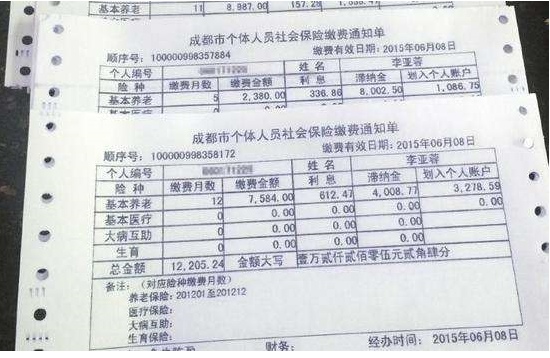 基本养老 11 8,987.00 157.29
成都市个体人员社会保险缴费通知单
顺序号：100000998357884 缴费有效日期：2015年06月08日
个人编号 姓名 李亚蓉
险种 缴费月数 缴费金额 利息 滞纳金 划入个人账户
基本养老 5 2,380.00 336.86 8,002.50 1,086.75
成都市个体人员社会保险缴费通知单
顺序号：100000998358172 缴费有效日期：2015年06月08日
个人编号 姓名 李亚蓉
险种 缴费月数 缴费金额 利息 滞纳金 划入个人账户
基本养老 12 7,584.00 612.47 4,008.77 3,278.59
基本医疗 0 0.00 0.00 0.00 0.00
大病互助 0 0.00 0.00 0.00
生育 0 0.00 0.00 0.00
总金额 12,205.24 金额大写 壹万贰仟贰佰零伍元贰角肆分
备注：（对应险种缴费月数）
养老保险：201201至201212
医疗保险：
大病互助：
生育保险：
财务： 经办时间：2015年06月08日